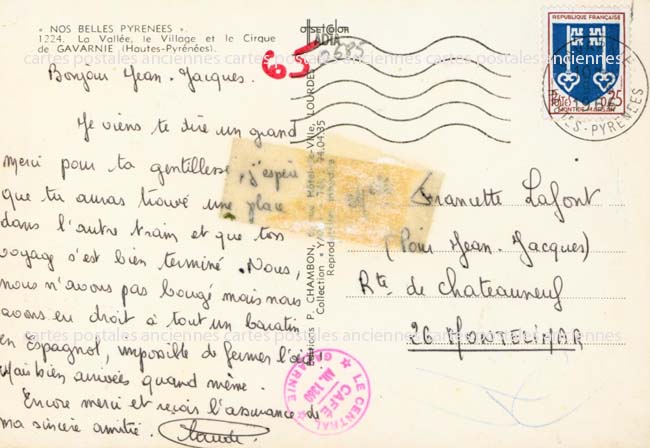 « NOS BELLES PYRENEES ».
1224. La Vallée, le Village et le Cirque
de GAVARNIE (Hautes-Pyrénées).
OFFSET COLOR
IADIA
65
REPUBLIQUE FRANÇAISE
POSTES 0,25
MONT-DE-MARSAN
HTES-PYRENEES
cartes postales anciennes cartes postales anciennes cartes postales anciennes
Bonjour Jean-Jacques.
Je viens te dire un grand
merci pour ta gentillesse, j'espère
que tu auras trouvé une place
dans l'autre train et que ton
voyage s'est bien terminé. Nous,
nous n'avons pas bougé mais nous
avons eu droit à tout un baratin
en Espagnol, impossible de fermer l'œil!
Mais bien arrivées quand même.
Encore merci et reçois l'assurance de
ma sincère amitié.
Editions P. CHAMBON, Hôtel-de-Ville, LOURDES
Collection Tél. 74.04.35
Reproduction interdite
Francette Lafont
(Pour Jean-Jacques)
Rte de Chateauneuf
26 MONTELIMAR
cartes postales anciennes cartes postales anciennes cartes postales anciennes
LE CENTRAL
CAFÉ
Alt. 1360
GAVARNIE